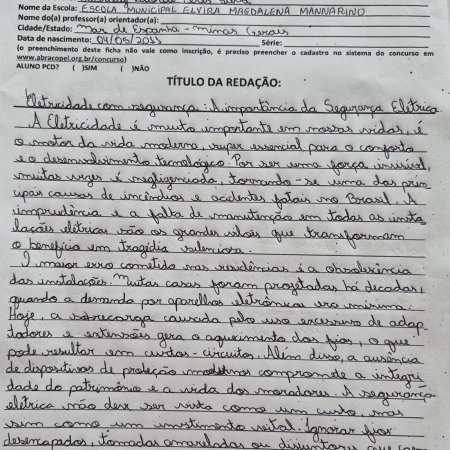 Nome da Escola: ESCOLA MUNICIPAL ELVIRA MAGDALENA MANNARINO
Nome do(a) professor(a) orientador(a):
Cidade/Estado: Mar de Espanha - Minas Gerais
Data de nascimento: 04/05/2011 Série:
(o preenchimento deste ficha não vale como inscrição, é preciso preencher o cadastro no sistema do concurso em
www.abracopel.org.br/concurso)
ALUNO PCD? ( )SIM ( )NÃO
TÍTULO DA REDAÇÃO:
Eletricidade com segurança: A importância da Segurança Elétrica
A Eletricidade é muito importante em nossas vidas, é
o motor da vida moderna, super essencial para o conforto
e o desenvolvimento tecnológico. Por ser uma força invisível,
muitas vezes é negligenciada, tornando-se uma das prin
cipais causas de incêndios e acidentes fatais no Brasil. A
imprudência e a falta de manutenção em todas as insta
lações elétricas são os grandes vilões que transformam
o benefício em tragédia silenciosa.
O maior erro cometido nas residências é a obsolescência
das instalações. Muitas casas foram projetadas há decadas,
quando a demanda por aparelhos eletrônicos era mínima.
Hoje, a sobrecarga causada pelo uso excessivo de adap
tadores e extensões gera o aquecimento dos fios, o que
pode resultar em curtos-circuitos. Além disso, a ausência
de dispositivos de proteção modernos compromete a integri
dade do patrimônio e a vida dos moradores. A segurança
elétrica não deve ser vista como um custo, mas
sim como um investimento vital. Ignorar fios
desencapados, tomadas amareladas ou disjuntores que